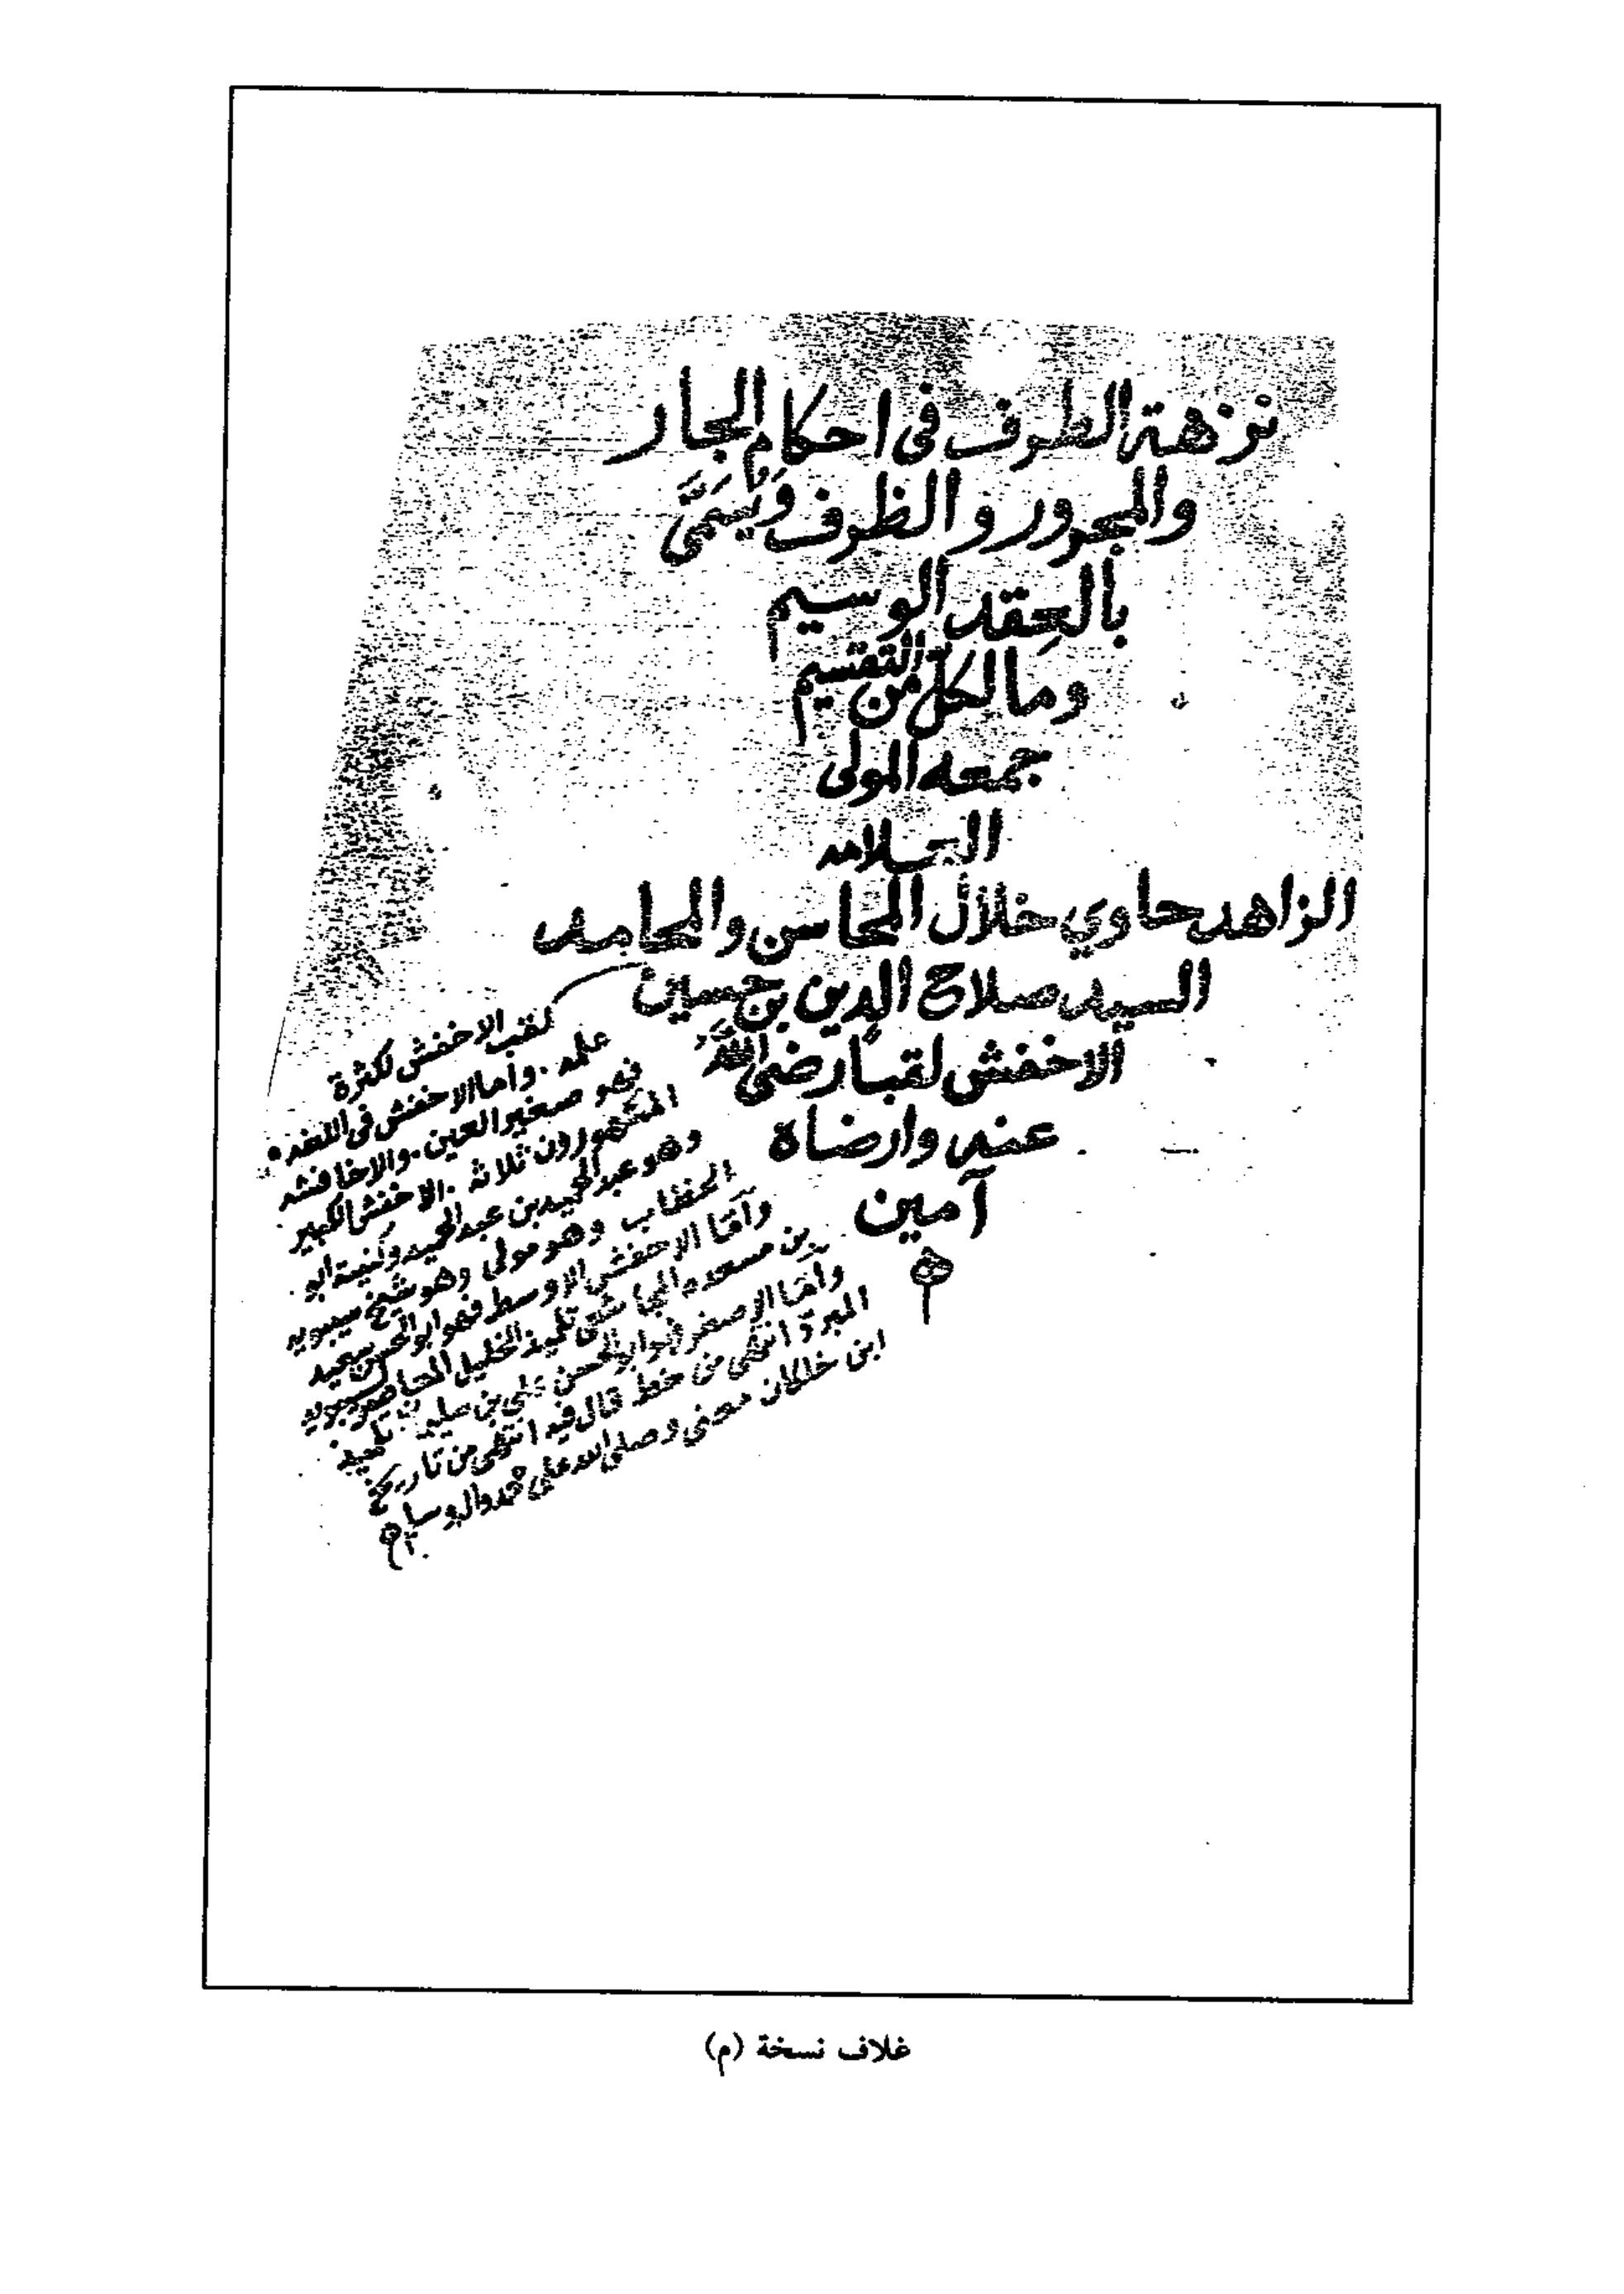 نزهة الطرف في احكام الجار
والمجرور والظرف ويسَمَّى
بالعِقد الوسيم
وما لكلٍّ من التقسيم
جمعه المولى
العلامه
الزاهد حاوي خلال المحاسن والمحامد
السيد صلاح الدين بن حسين
الاخفش لقباً رضي الله
عنه وارضاة
آمين
لقب الاخفش لكثرة
علمه . وأما الاخفش في اللغه
فهو صغير العين . والاخافشه
المشهورون ثلاثه . الاخفش الكبير
وهو عبد الحميد بن عبد الحميد وكنيته ابو
الخطاب وهو مولى وهو شيخ سيبويه
وأمّا الاخفش الاوسط فهو ابو الحسن سعيد
بن مسعده المجاشعي تلميذ الخليل المعاصر سيبويه
وامّا الاصغر فهو ابو الحسن علي بن سليمان تلميذ
المبرد انتهى من خط قال فيه انتهى من تاريخ
ابن خلكان معنى وصلى الله على محمد وآله وسلم
غلاف نسخة (م)